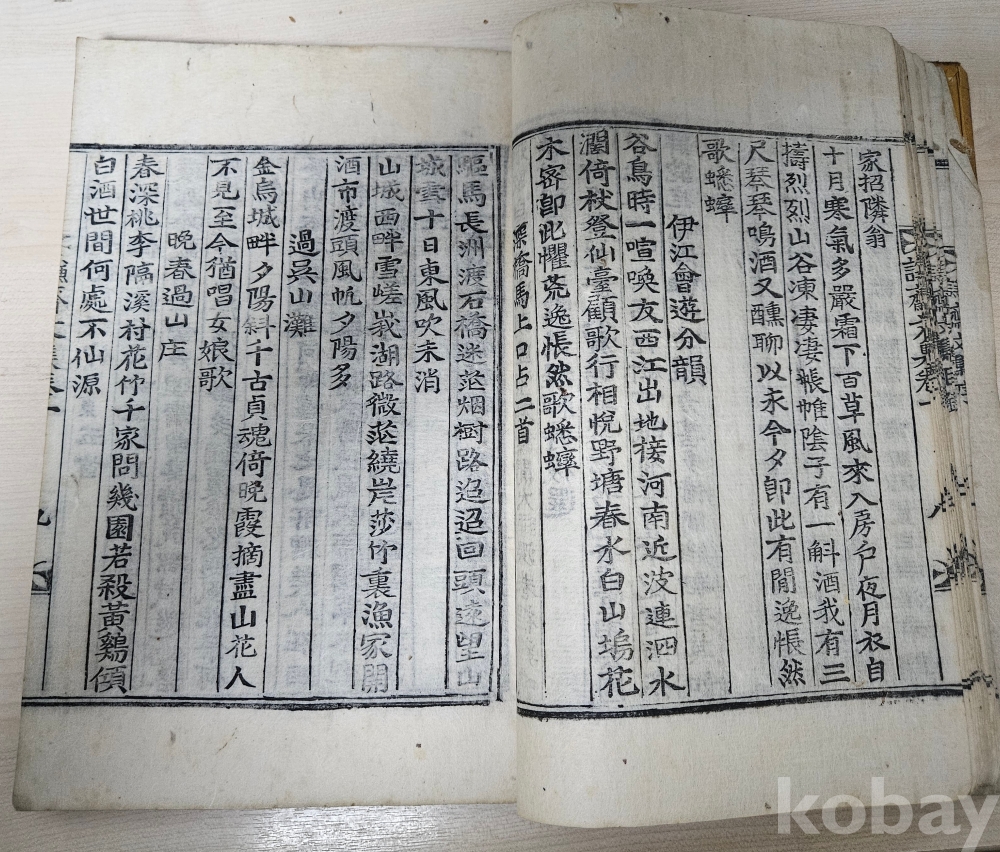 家招隣翁
十月寒氣多嚴霜下百草風來入房户夜月衣自
擣烈烈山谷凍凄凄帳帷陰子有一斛酒我有三
尺琴琴鳴酒又醺聊以永今夕卽此有閒逸悵然
歌蟋蟀
伊江會遊分韻
谷鳥時一喧喚友西江出地接河南近波連泗水
濶倚杖登仙臺顧歌行相悅野塘春水白山塢花
木密卽此懼荒逸悵然歌蟋蟀
橋馬上口占二首
驅馬長洲渡石橋迷茫烟樹路迢迢回頭遠望山
城雪十日東風吹未消
山城西畔雪嵯峩湖路微茫繞岸莎竹裏漁家開
酒市渡頭風帆夕陽多
過吳山灘
金烏城畔夕陽斜千古貞魂倚晩霞摘盡山花人
不見至今猶唱女娘歌
晩春過山庄
春深桃李隔溪村花竹千家問幾園若殺黃鷄傾
白酒世間何處不仙源
集卷一
九
卷一
八
kobay